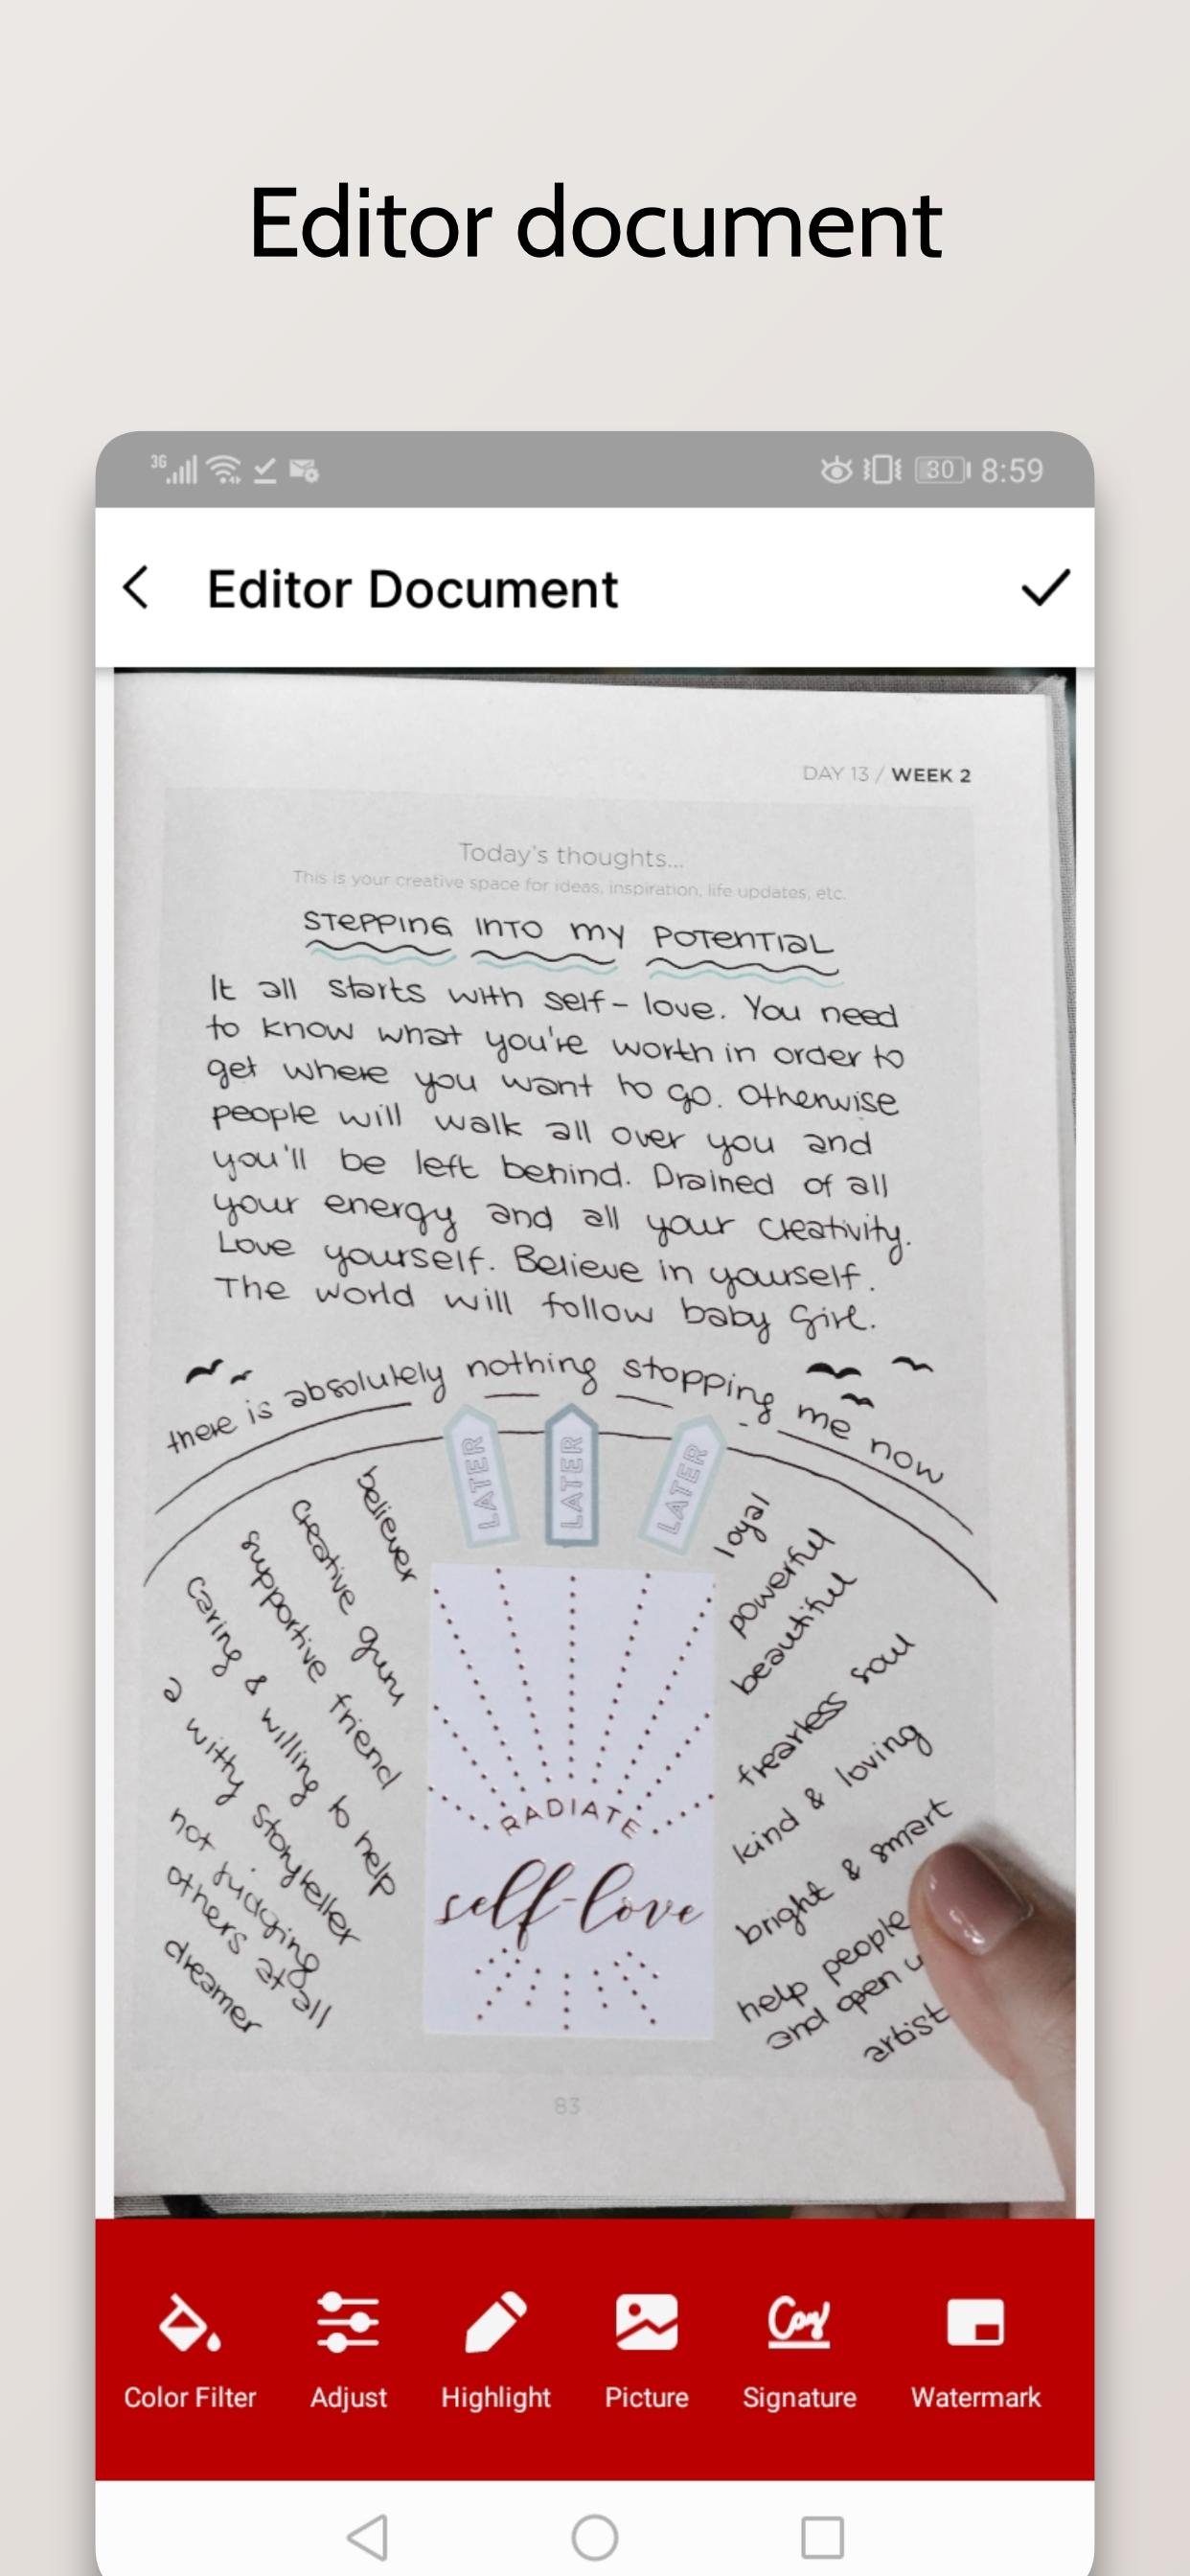 Editor document
3G 30 8:59
Editor Document
DAY 13 / WEEK 2
Today's thoughts...
This is your creative space for ideas, inspiration, life updates, etc.
STEPPING INTO MY POTENTIAL
It all starts with self-love. You need
to know what you're worth in order to
get where you want to go. Otherwise
people will walk all over you and
you'll be left behind. Drained of all
your energy and all your creativity.
Love yourself. Believe in yourself.
The world will follow baby girl.
there is absolutely nothing stopping me now
LATER
LATER
LATER
believer
creative guru
supportive friend
caring & willing to help
a witty storyteller
not judging
others at all
dreamer
loyal
powerful
beautiful
fearless soul
kind & loving
bright & smart
help people
and open
artist
RADIATE
self-love
83
Color Filter
Adjust
Highlight
Picture
Signature
Watermark